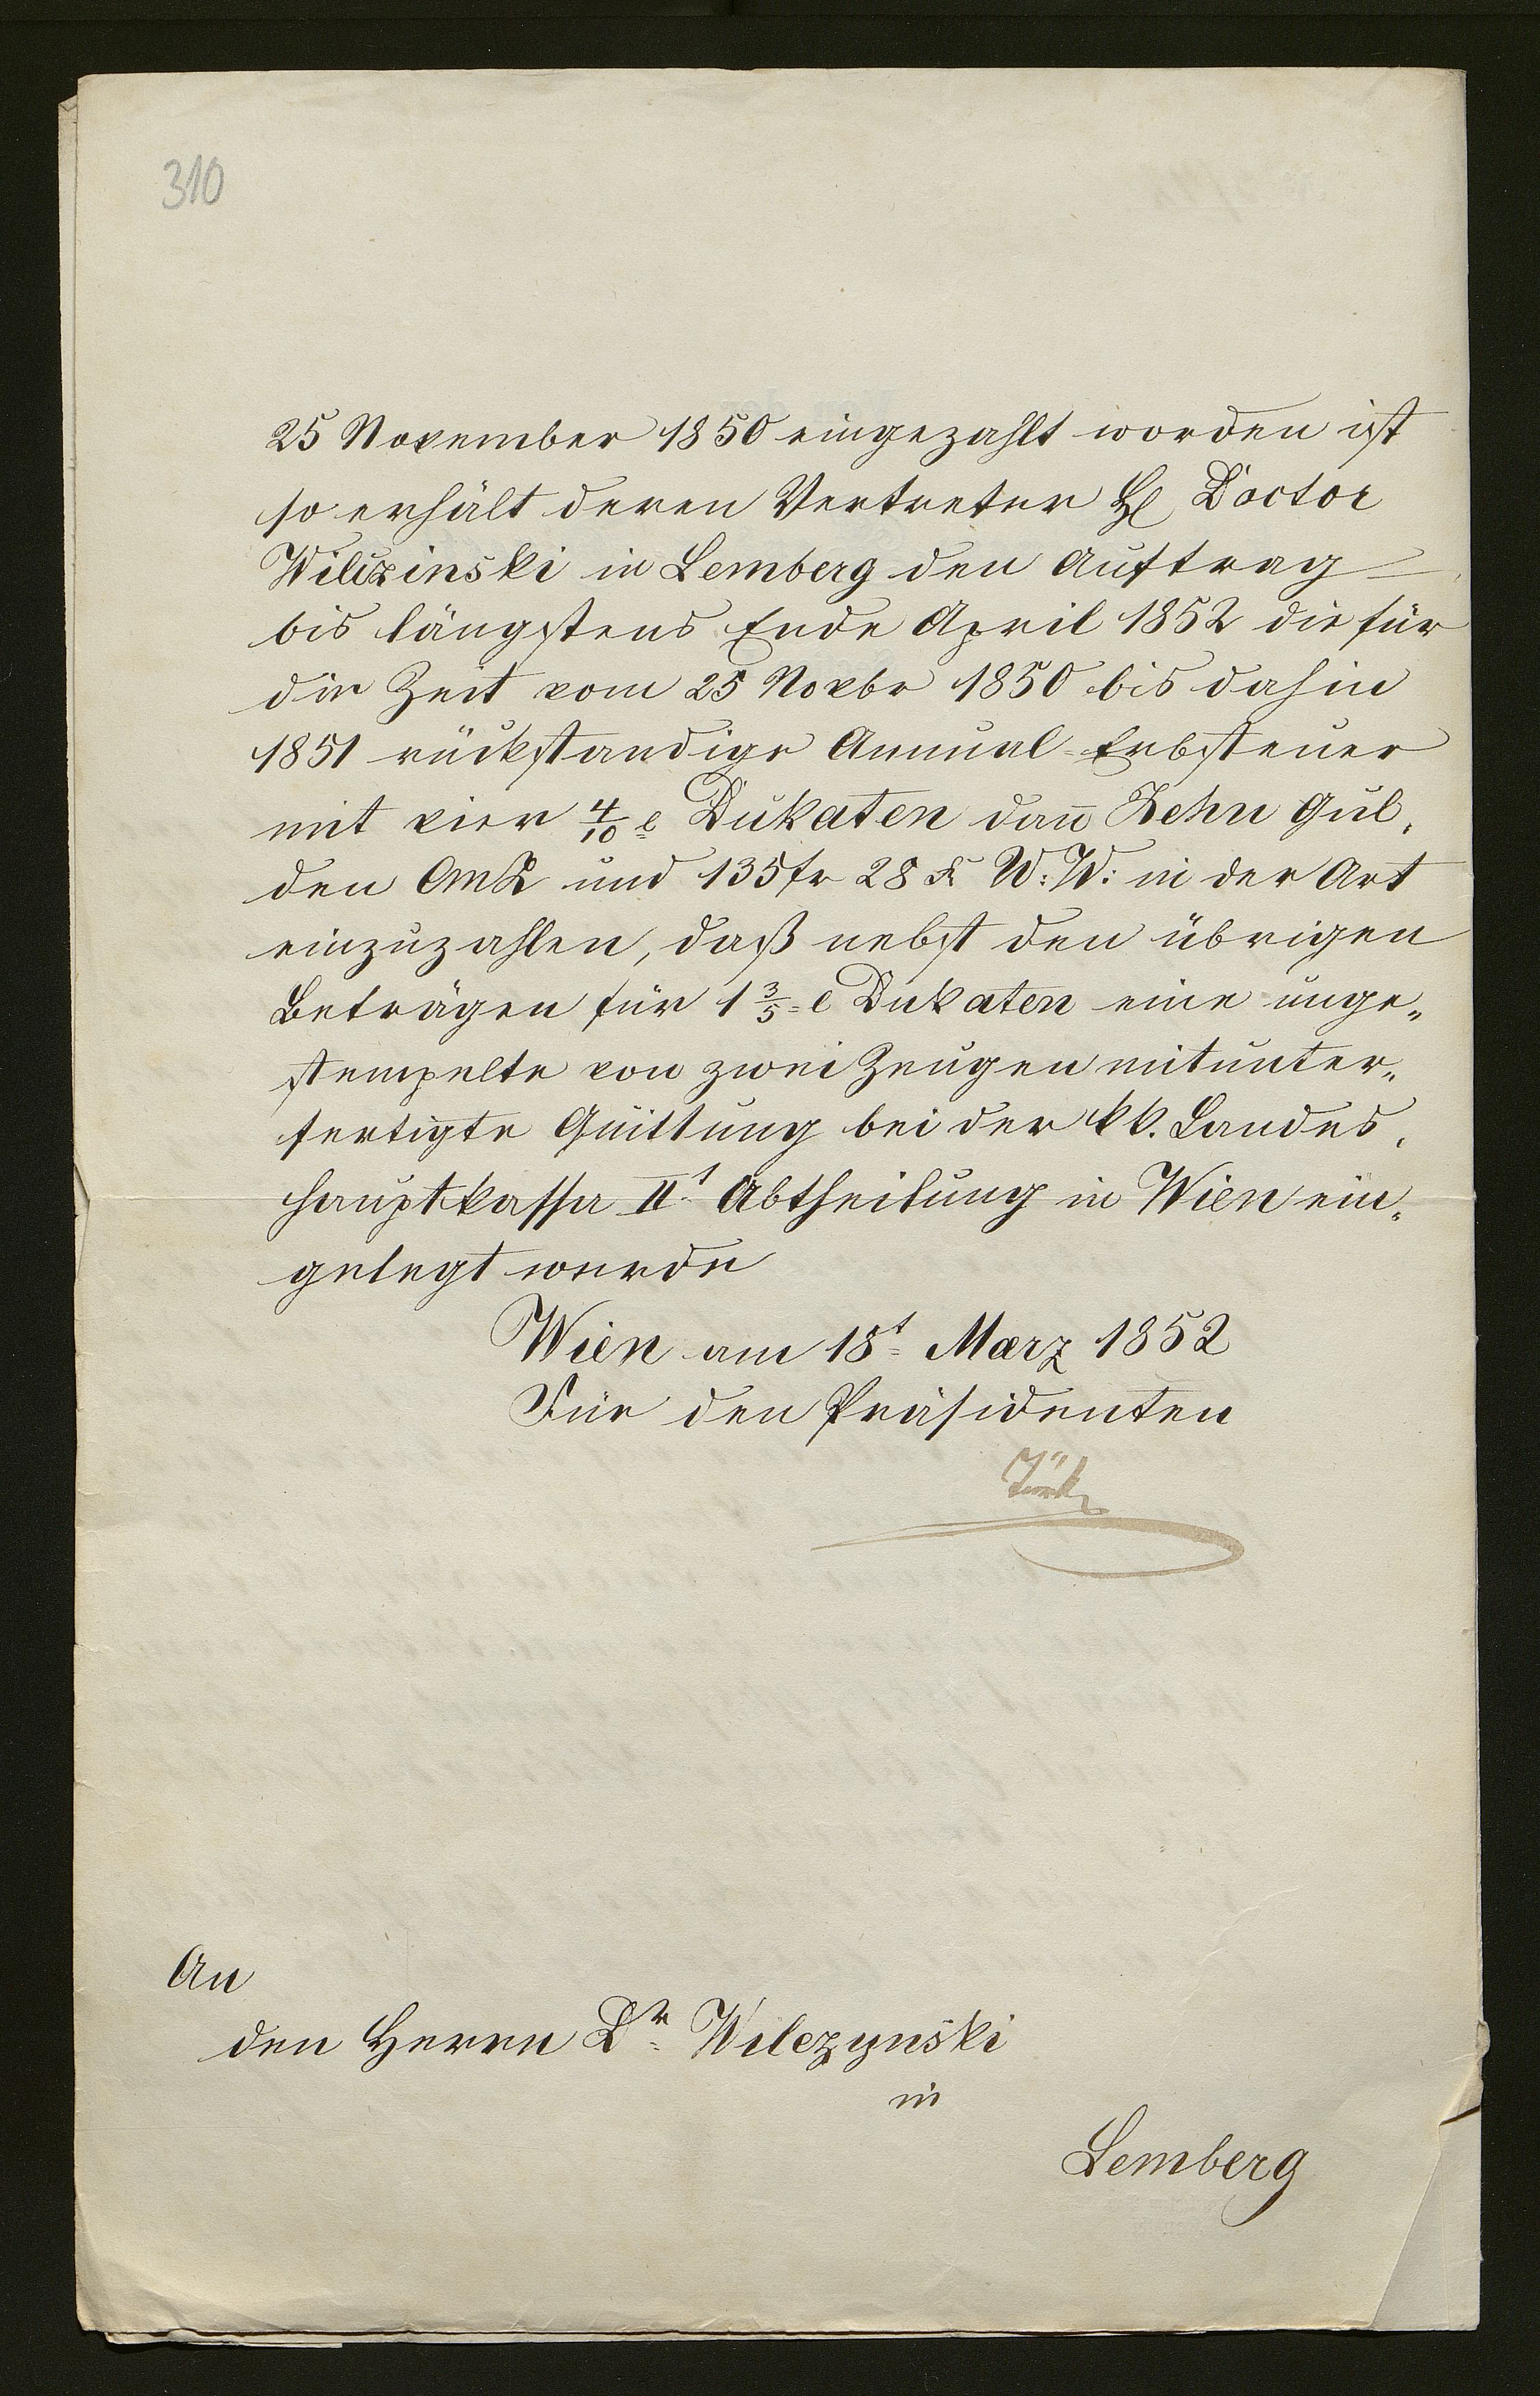 310
25 November 1850 eingezahlt worden ist
so erhält deren Vertreter H Doctor
Wilczinski in Lemberg den Auftrag
bis längstens Ende April 1852 die für
die Zeit vom 25 Novbr 1850 bis dahin
1851 rückstandige Annual-Erbsteuer
mit vier 4/10 e Dukaten dan̄ Zehn Gul,
den CMz und 135 fr 28 xr W: W: in der Art
einzuzahlen, daß nebst den übrigen
Beträgen für 1 3/5 e Dukaten eine unge„
stempelte von zwei Zeugen mitunter„
fertigte Quittung bei der kk. Landes,
hauptkasse IIt Abtheilung in Wien ein„
gelegt werde
Wien am 18t März 1852
Für den Präsidenten
An
den Herrn Dr Wilczynski
in
Lemberg